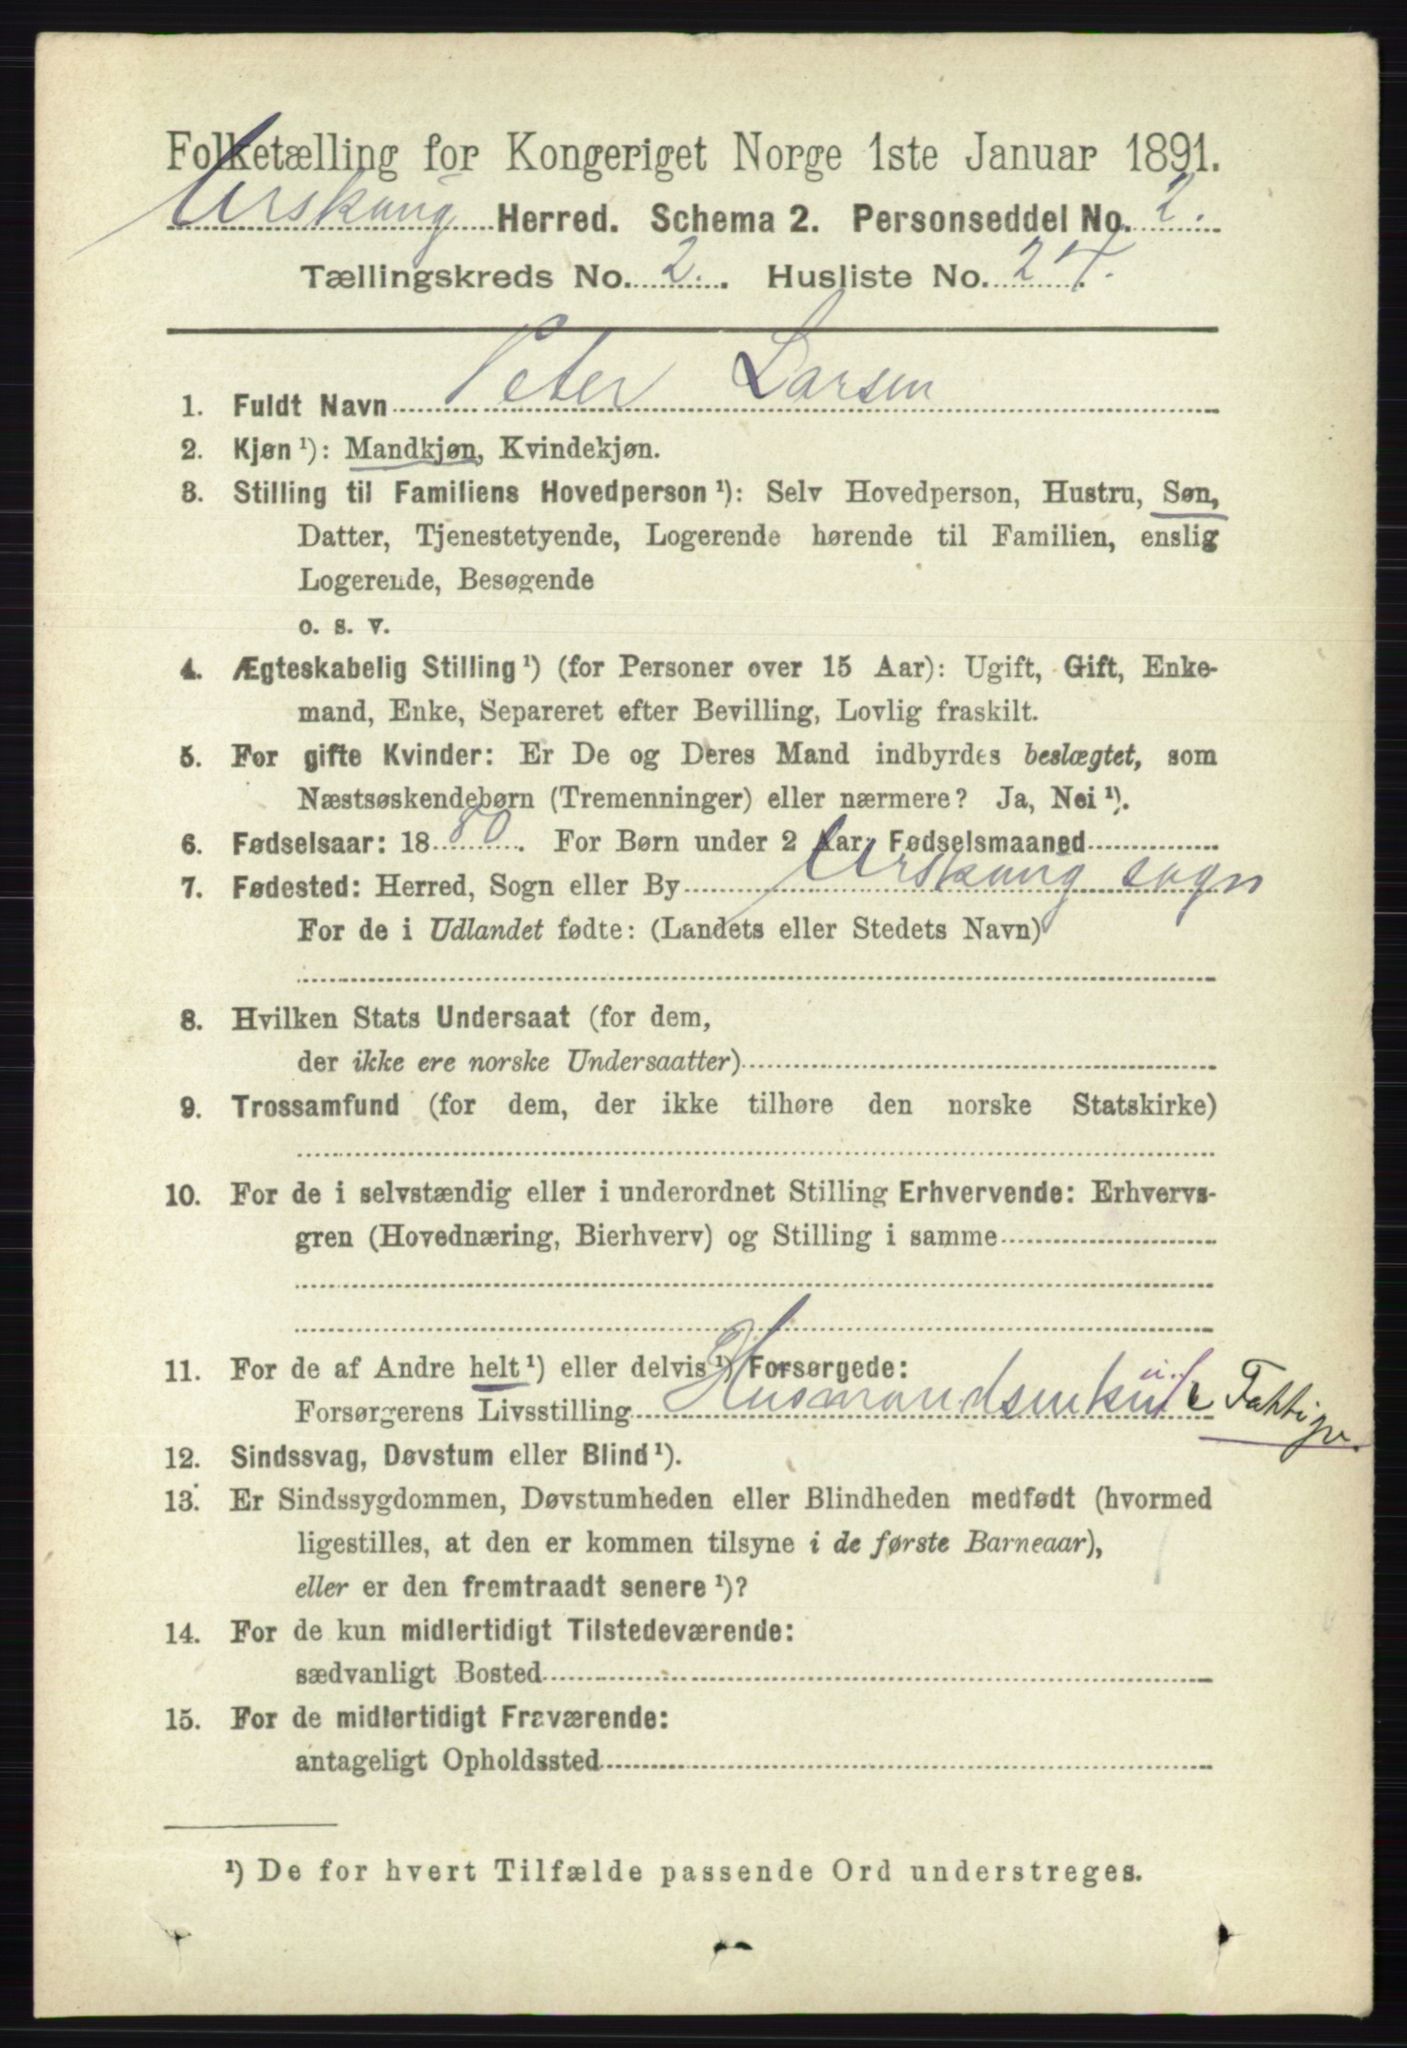 Folketælling for Kongeriget Norge 1ste Januar 1891.
Urskoug Herred. Schema 2. Personseddel No. 2.
Tællingskreds No. 2. Husliste No. 24.
1. Fuldt Navn Peter Larsen
2. Kjøn ¹): Mandkjøn, Kvindekjøn.
3. Stilling til Familiens Hovedperson ¹): Selv Hovedperson, Hustru, Søn,
Datter, Tjenestetyende, Logerende hørende til Familien, enslig
Logerende, Besøgende
o. s. v.
4. Ægteskabelig Stilling ¹) (for Personer over 15 Aar): Ugift, Gift, Enke-
mand, Enke, Separeret efter Bevilling, Lovlig fraskilt.
5. For gifte Kvinder: Er De og Deres Mand indbyrdes beslægtet, som
Næstsøskendebørn (Tremenninger) eller nærmere? Ja, Nei ¹).
6. Fødselsaar: 1880. For Børn under 2 Aar: Fødselsmaaned
7. Fødested: Herred, Sogn eller By Urskoug sogn
For de i Udlandet fødte: (Landets eller Stedets Navn)
8. Hvilken Stats Undersaat (for dem,
der ikke ere norske Undersaatter)
9. Trossamfund (for dem, der ikke tilhøre den norske Statskirke)
10. For de i selvstændig eller i underordnet Stilling Erhvervende: Erhvervs-
gren (Hovednæring, Bierhverv) og Stilling i samme
11. For de af Andre helt ¹) eller delvis ¹) Forsørgede:
Forsørgerens Livsstilling Husmandsenke
12. Sindssvag, Døvstum eller Blind ¹).
13. Er Sindssygdommen, Døvstumheden eller Blindheden medfødt (hvormed
ligestilles, at den er kommen tilsyne i de første Barneaar),
eller er den fremtraadt senere ¹)?
14. For de kun midlertidigt Tilstedeværende:
sædvanligt Bosted
15. For de midlertidigt Fraværende:
antageligt Opholdssted
¹) De for hvert Tilfælde passende Ord understreges.